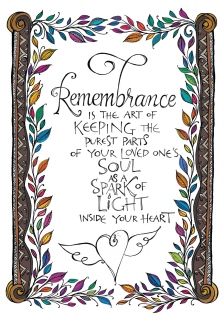 Remembrance
IS THE ART OF
KEEPING THE
PUREST PARTS
OF YOUR LOVED ONE'S
SOUL
AS A
SPARK OF
LIGHT
INSIDE YOUR HEART